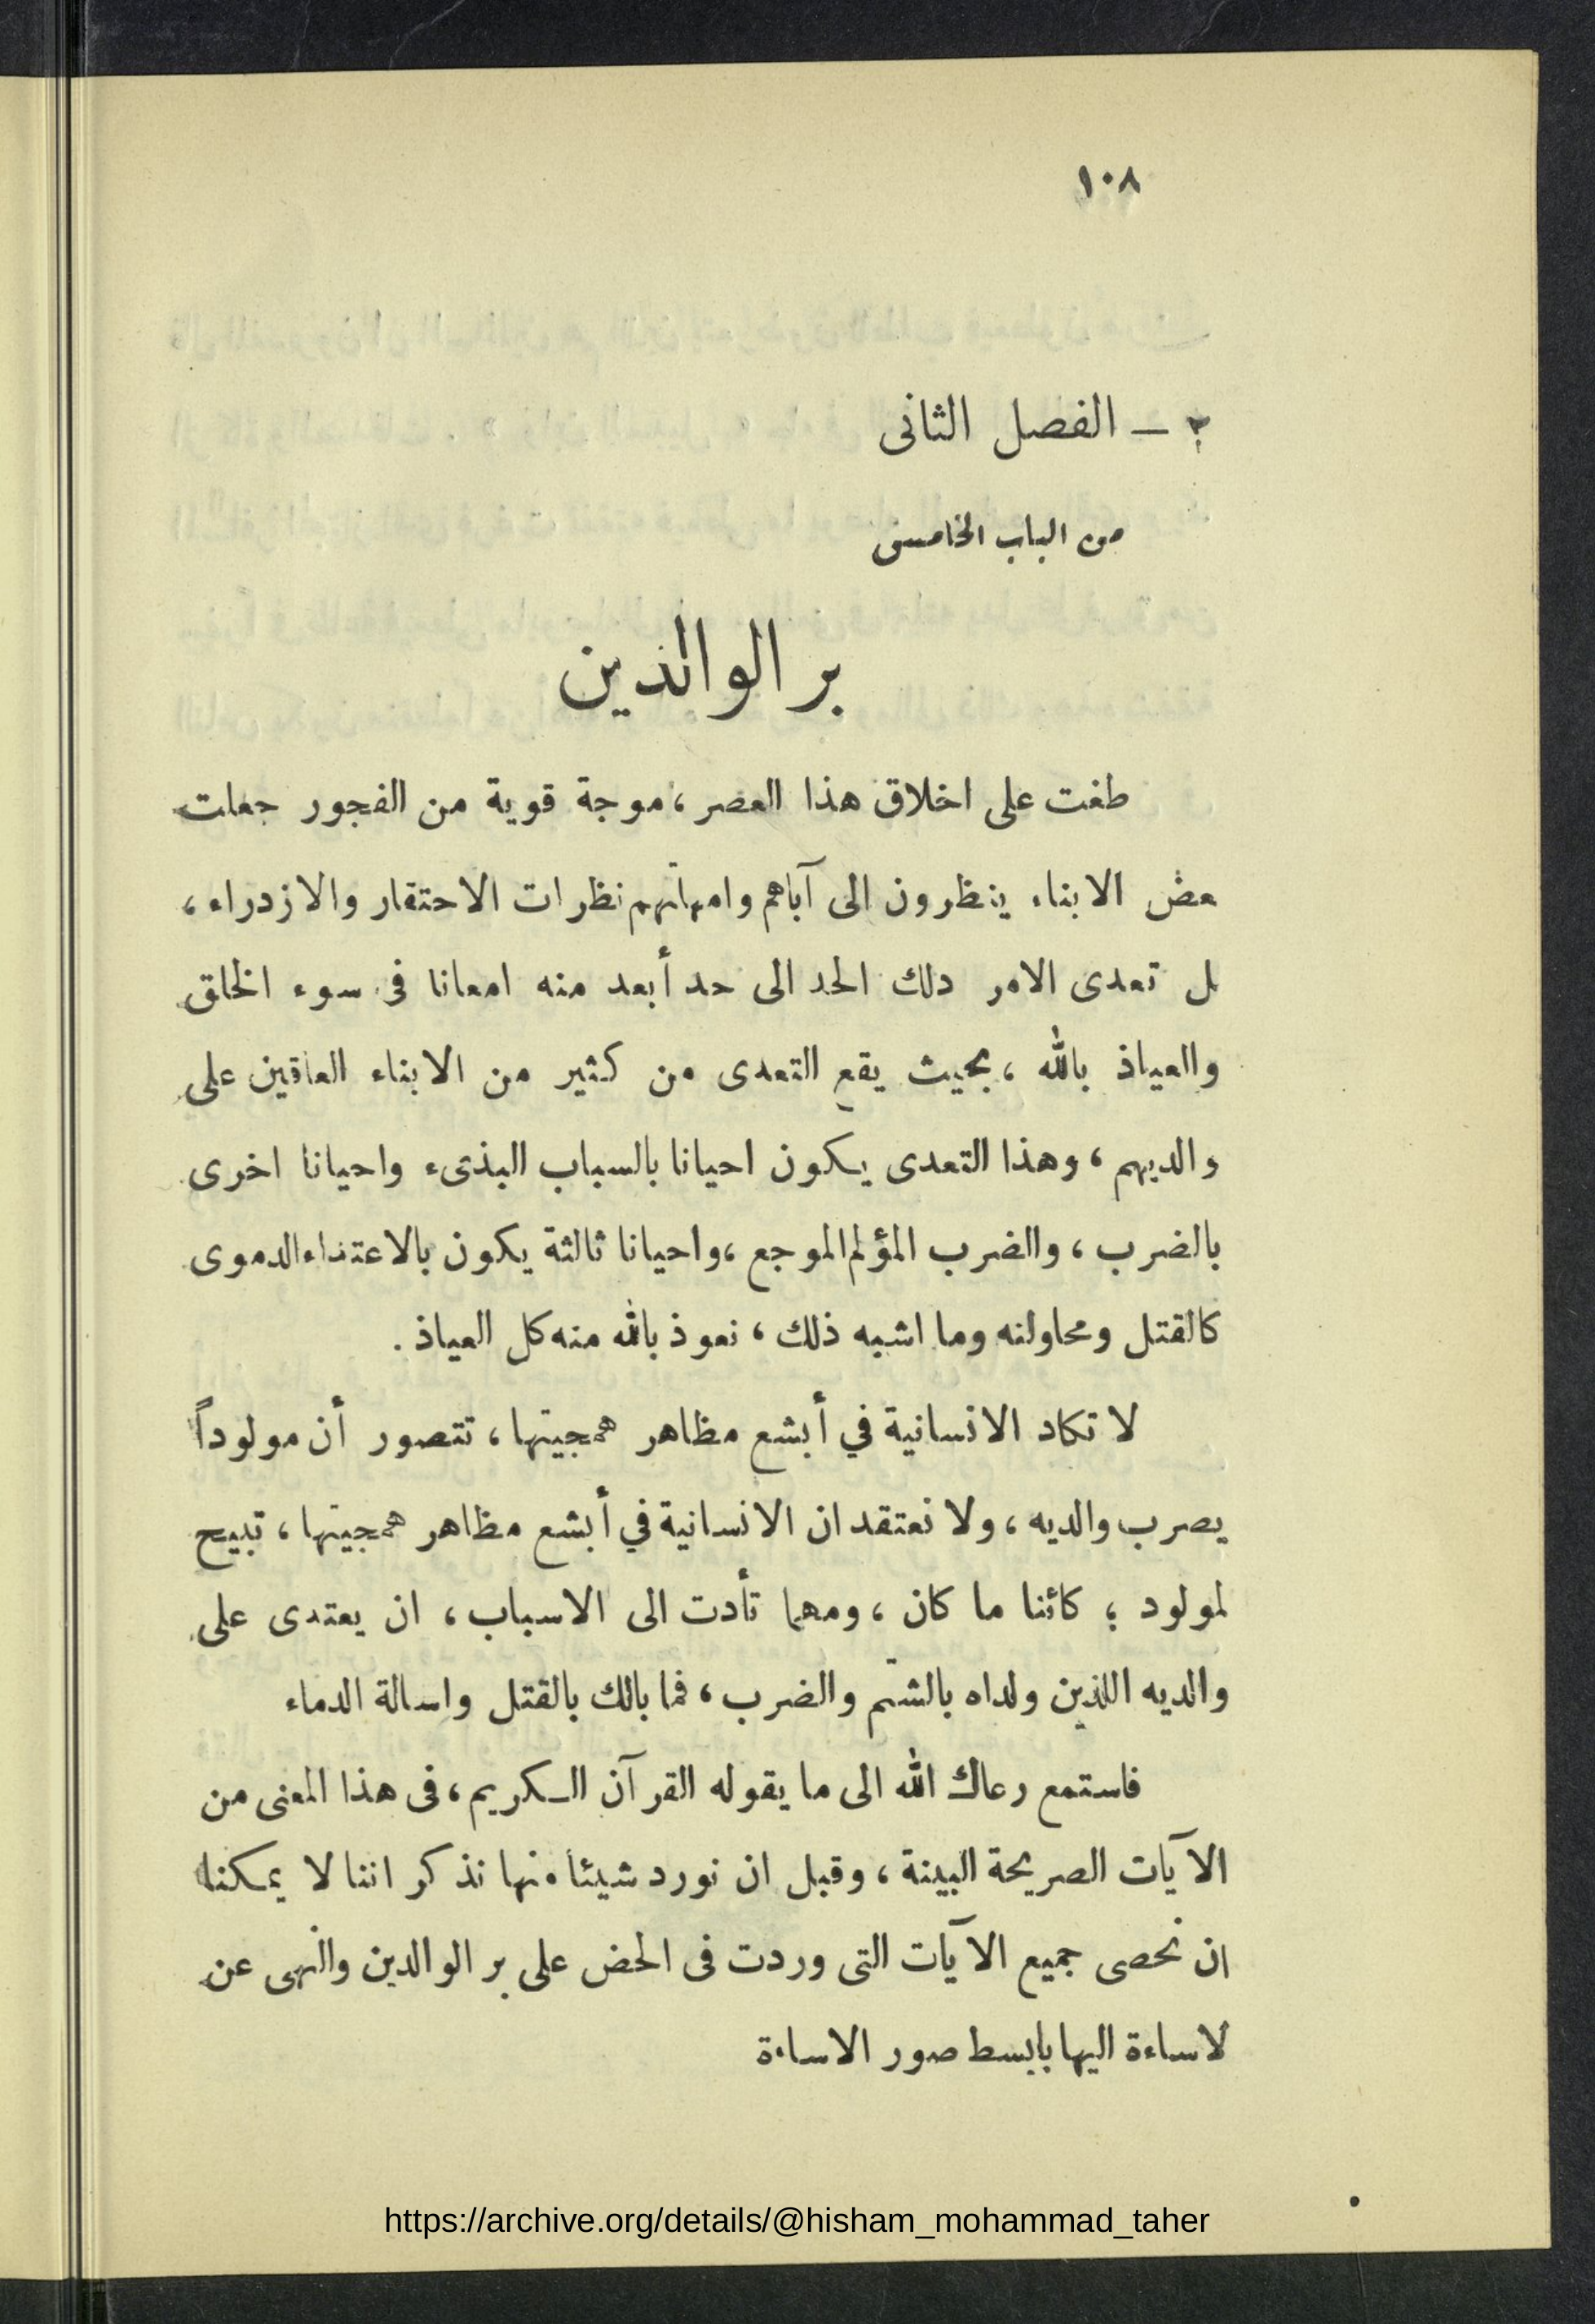 ١٠٨
٢ – الفصل الثانى
من الباب الخامس
بر الوالدين
طغت على اخلاق هذا العصر ، موجة قوية من الفجور جعلت
عض الابناء ينظرون الى آباهم وامهاتهم نظرات الاحتقار والازدراء ،
ل تعدى الامر دلك الحد الى حد أبعد منه امعانا فى سوء الخلق
والعياذ بالله ، بحيث يقع التعدى من كثير من الابناء العاقين على
والديهم ، وهذا التعدى يكون احيانا بالسباب البذىء واحيانا اخرى
بالضرب ، والضرب المؤلم الموجع ، واحيانا ثالثة يكون بالاعتداء الدموى
كالقتل ومحاولنه وما اشبه ذلك ، نعوذ بالله منه كل العياذ .
لا تكاد الانسانية في أبشع مظاهر همجيتها ، تتصور أن مولوداً
يصرب والديه ، ولا نعتقد ان الانسانية في أبشع مظاهر همجيتها ، تبيح
لمولود ؛ كائنا ما كان ، ومهما تأدت الى الاسباب ، ان يعتدى على
والديه اللذين ولداه بالشتم والضرب ، فما بالك بالقتل واسالة الدماء
فاستمع رعاك الله الى ما يقوله القرآن الكريم ، فى هذا المعنى من
الآيات الصريحة البينة ، وقبل ان نورد شيئا منها نذكر اننا لا يمكننا
ان نحصى جميع الآيات التى وردت فى الحض على بر الوالدين والنهى عن
لاساءة اليها بابسط صور الاساءة
https://archive.org/details/@hisham_mohammad_taher